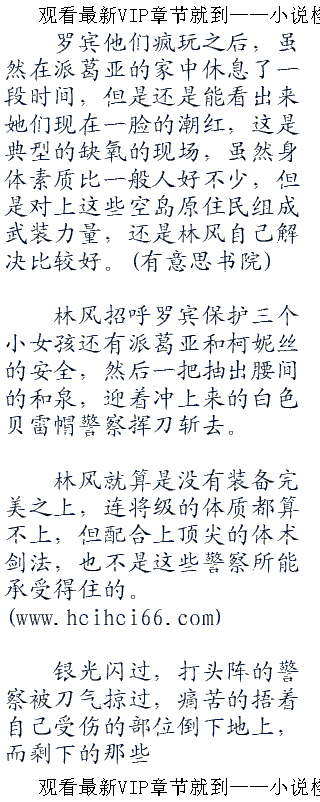 观看最新VIP章节就到——小说检
罗宾他们疯玩之后，虽
然在派葛亚的家中休息了一
段时间，但是还是能看出来
她们现在一脸的潮红，这是
典型的缺氧的现场，虽然身
体素质比一般人好不少，但
是对上这些空岛原住民组成
武装力量，还是林风自己解
决比较好。(有意思书院)
林风招呼罗宾保护三个
小女孩还有派葛亚和柯妮丝
的安全，然后一把抽出腰间
的和泉，迎着冲上来的白色
贝雷帽警察挥刀斩去。
林风就算是没有装备完
美之上，连将级的体质都算
不上，但配合上顶尖的体术
剑法，也不是这些警察所能
承受得住的。
(www.hcihci66.com)
银光闪过，打头阵的警
察被刀气掠过，痛苦的捂着
自己受伤的部位倒下地上，
而剩下的那些
观看最新VIP章节就到——小说检